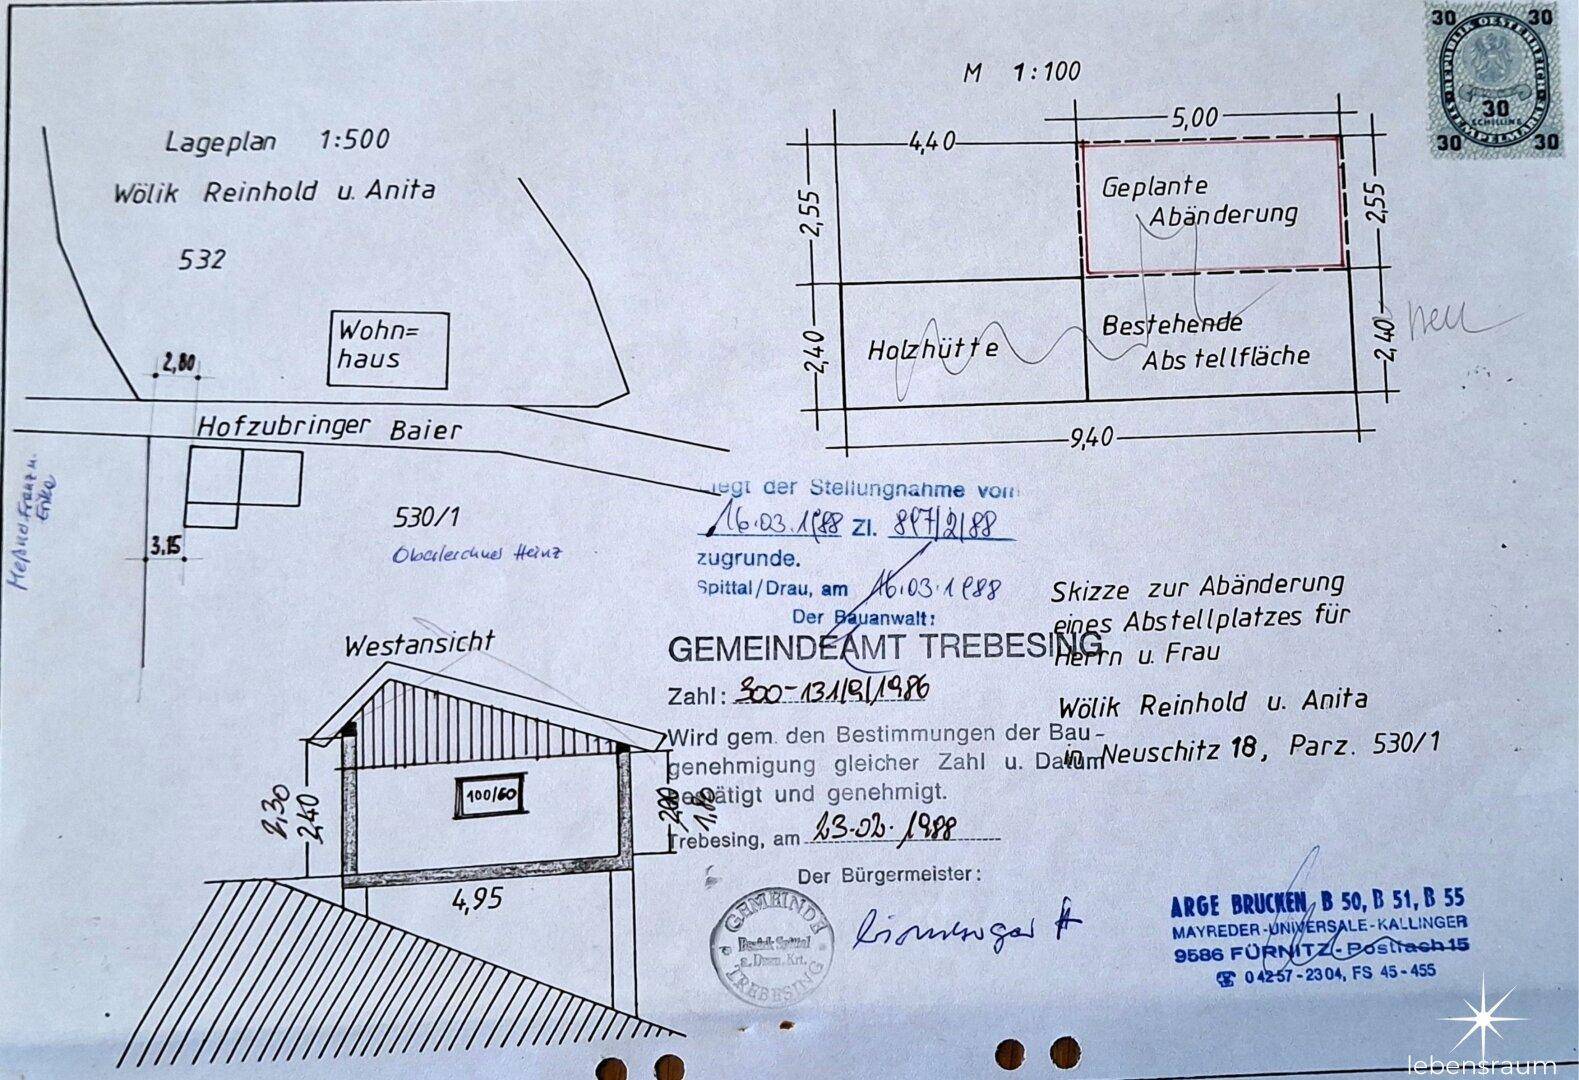 30 30
REPUBLIK OESTERREICH
30
SCHILLING
STEMPELMARKE
30 30
M 1:100
Lageplan 1:500
Wölik Reinhold u. Anita
532
Wohn=
haus
2,80
Hofzubringer Baier
3,15
530/1
Oberlerchner Heinz
Meßner Franz u.
Erika
4,40
5,00
2,55
Geplante
Abänderung
2,55
2,40
Holzhütte
Bestehende
Abstellfläche
2,40
neu
9,40
liegt der Stellungnahme vom
16.03.1988 Zl. 897/2/88
zugrunde.
Spittal/Drau, am 16.03.1988
Der Bauanwalt:
GEMEINDEAMT TREBESING
Zahl: 300-131/9/1986
Wird gem. den Bestimmungen der Bau-
genehmigung gleicher Zahl u. Datum
bestätigt und genehmigt.
Trebesing, am 23.02.1988
Der Bürgermeister:
GEMEINDE
Bezirk Spittal
a. Drau, Krt.
TREBESING
Skizze zur Abänderung
eines Abstellplatzes für
Herrn u. Frau
Wölik Reinhold u. Anita
in Neuschitz 18, Parz. 530/1
Westansicht
100/60
2,30
2,40
2,00
1,80
4,95
ARGE BRUCKEN B 50, B 51, B 55
MAYREDER-UNIVERSALE-KALLINGER
9586 FÜRNITZ-Postfach 15
☎ 04257-2304, FS 45-455
lebensraum